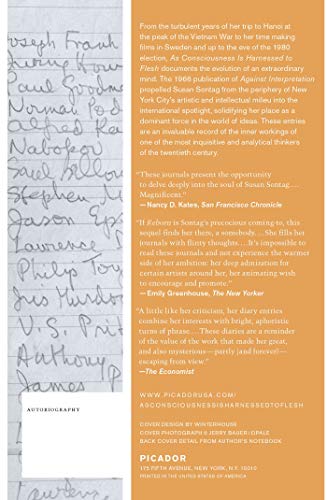 oseph Frank
Paul Goodm
Norman Pod
Nabokov
Saul Bellow
Stephen
ason Eps
Lawrence
Philip Toy
V. S. Prit
Anthony P
James
AUTOBIOGRAPHY
From the turbulent years of her trip to Hanoi at
the peak of the Vietnam War to her time making
films in Sweden and up to the eve of the 1980
election, As Consciousness Is Harnessed to
Flesh documents the evolution of an extraordinary
mind. The 1966 publication of Against Interpretation
propelled Susan Sontag from the periphery of New
York City's artistic and intellectual milieu into the
international spotlight, solidifying her place as a
dominant force in the world of ideas. These entries
are an invaluable record of the inner workings of
one of the most inquisitive and analytical thinkers
of the twentieth century.
"These journals present the opportunity
to delve deeply into the soul of Susan Sontag....
Magnificent."
—Nancy D. Kates, San Francisco Chronicle
"If Reborn is Sontag's precocious coming-to, this
sequel finds her there, a somebody.... She fills her
journals with flinty thoughts.... It's impossible to
read these journals and not experience the warmer
side of her ambition: her deep admiration for
certain artists around her, her animating wish
to encourage and promote."
—Emily Greenhouse, The New Yorker
"A little like her criticism, her diary entries
combine her interests with bright, aphoristic
turns of phrase.... These diaries are a reminder
of the value of the work that made her great,
and also mysterious—partly [and forever]—
escaping from view."
—The Economist
WWW.PICADORUSA.COM/
ASCONSCIOUSNESSISHARNESSEDTOFLESH
COVER DESIGN BY WINTERHOUSE
COVER PHOTOGRAPH © JERRY BAUER/OPALE
BACK COVER DETAIL FROM AUTHOR'S NOTEBOOK
PICADOR
175 FIFTH AVENUE, NEW YORK, N.Y. 10010
PRINTED IN THE UNITED STATES OF AMERICA